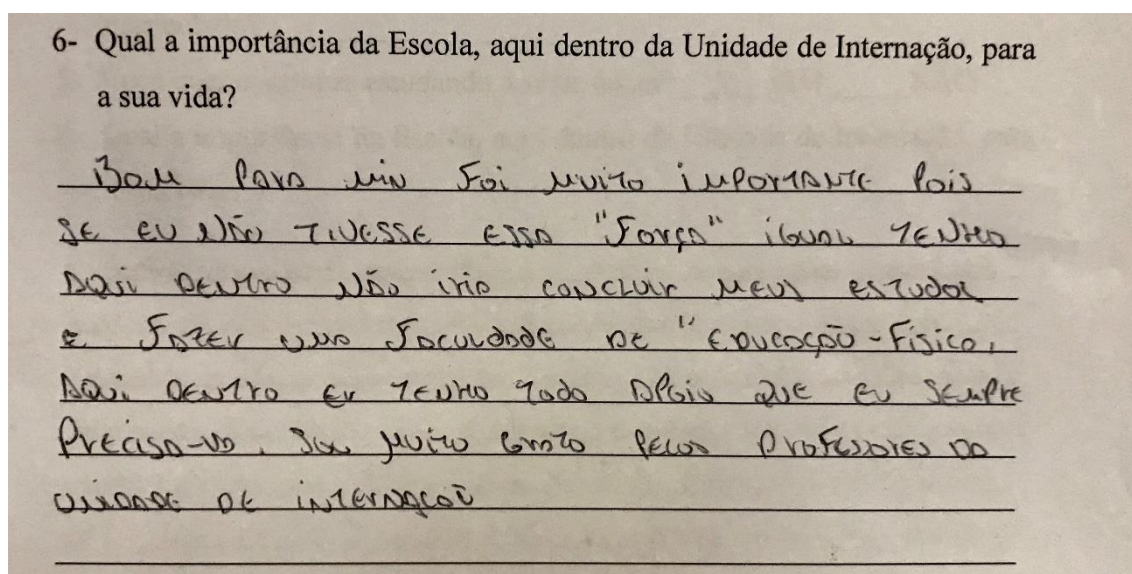 6- Qual a importância da Escola, aqui dentro da Unidade de Internação, para
a sua vida?
Bom Para min Foi muito importante Pois
se eu não tivesse essa "Força" igual tenho
aqui dentro não iria concluir meus estudos
e Fazer uma Faculdade de "Educação-Física,
aqui dentro eu tenho todo apoio que eu sempre
Precisa-va. Sou muito grato pelos Professores da
unidade de internação